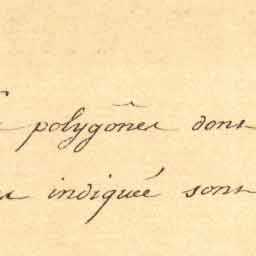 polygones dont
indiqueé sont